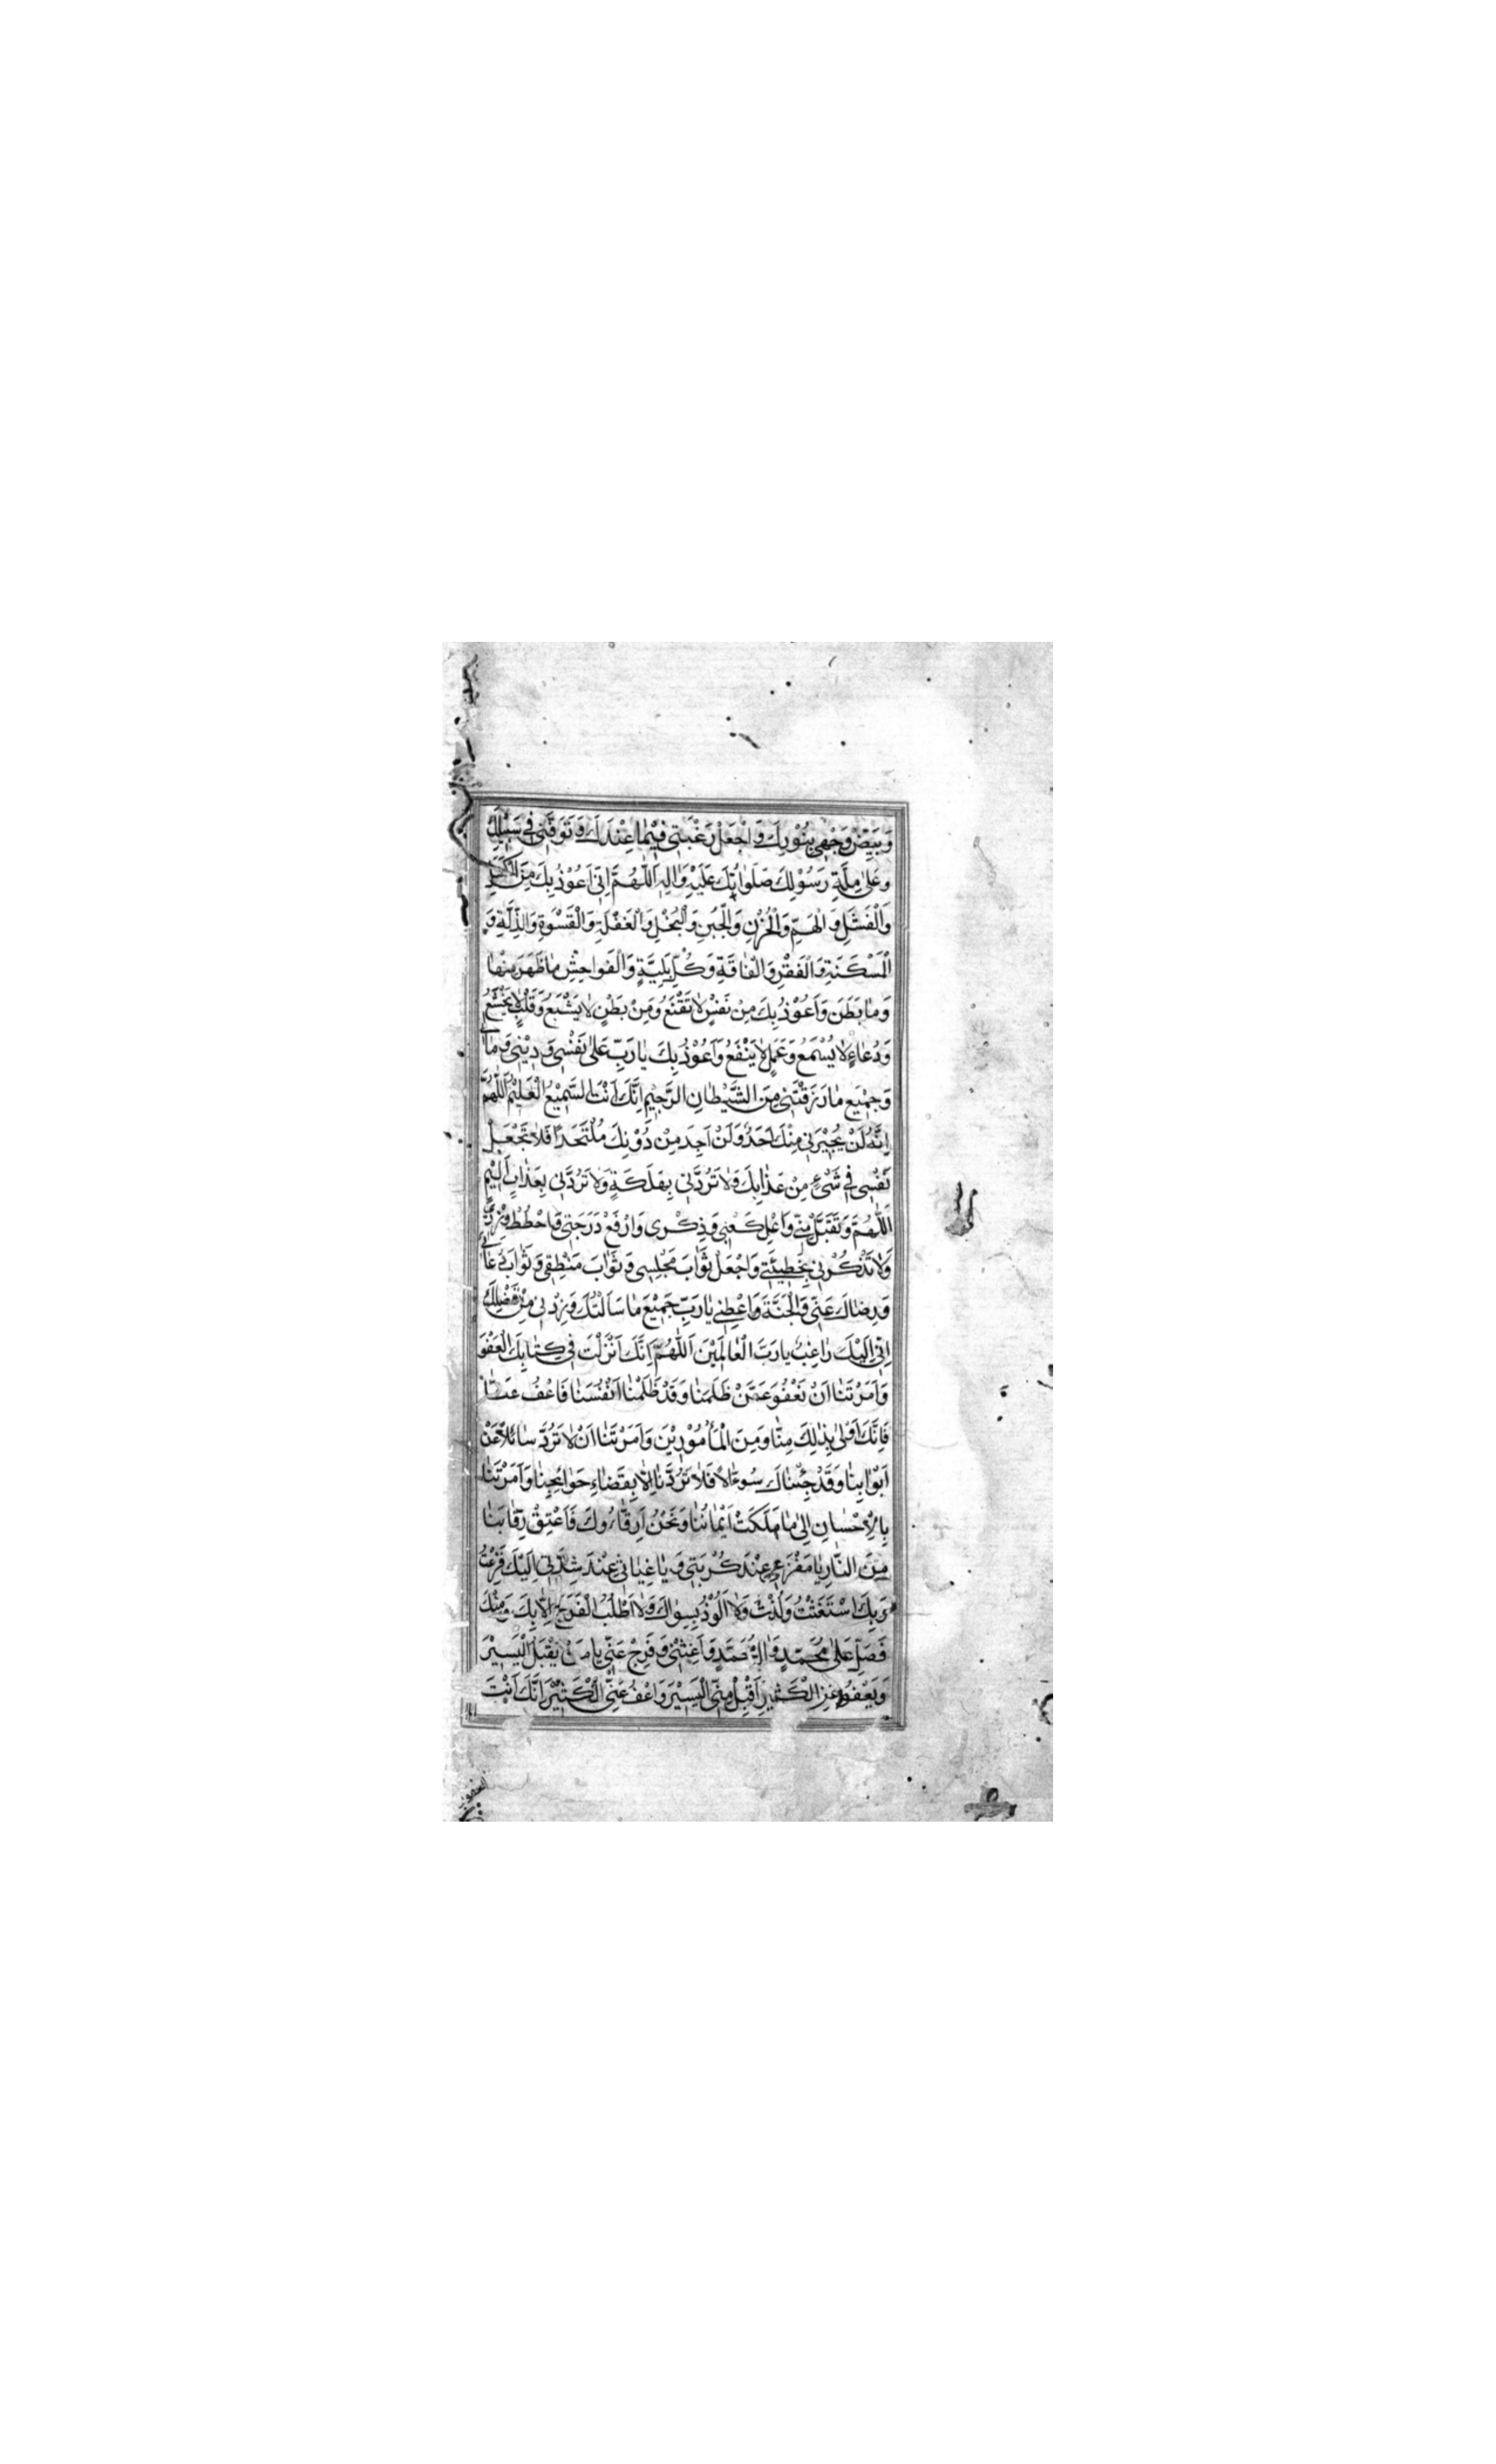 وَبَيِّضْ وَجْهِي بِنُوْرِكَ وَاجْعَلْ رَغْبَتِي فِيْمَا عِنْدَكَ وَتَوَفَّنِي فِي سَبِيْلِكَ
وَعَلَى مِلَّةِ رَسُوْلِكَ صَلَوَاتُكَ عَلَيْهِ وَالِهِ اَللّٰهُمَّ اِنِّي اَعُوْذُ بِكَ مِنَ الْكَسَلِ
وَالْفَشَلِ وَالْهَمِّ وَالْحُزْنِ وَالْجُبْنِ وَالْبُخْلِ وَالْغَفْلَةِ وَالْقَسْوَةِ وَالذِّلَّةِ وَ
الْمَسْكَنَةِ وَالْفَقْرِ وَالْفَاقَةِ وَكُلِّ بَلِيَّةٍ وَالْفَوَاحِشِ مَا ظَهَرَ مِنْهَا
وَمَا بَطَنَ وَاَعُوْذُ بِكَ مِنْ نَفْسٍ لَا تَقْنَعُ وَمِنْ بَطْنٍ لَا يَشْبَعُ وَقَلْبٍ لَا يَخْشَعُ
وَدُعَاءٍ لَا يُسْمَعُ وَعَمَلٍ لَا يَنْفَعُ وَاَعُوْذُ بِكَ يَا رَبِّ عَلَى نَفْسِي وَدِيْنِي وَمَالِي
وَجَمِيْعِ مَا رَزَقْتَنِي مِنَ الشَّيْطَانِ الرَّجِيْمِ اِنَّكَ اَنْتَ السَّمِيْعُ الْعَلِيْمُ اَللّٰهُمَّ
اِنَّهُ لَنْ يُجِيْرَنِي مِنْكَ اَحَدٌ وَلَنْ اَجِدَ مِنْ دُوْنِكَ مُلْتَحَدًا فَلَا تَجْعَلْ
نَفْسِي فِي شَيْءٍ مِنْ عَذَابِكَ وَلَا تَرُدَّنِي بِهَلَكَةٍ وَلَا تَرُدَّنِي بِعَذَابٍ اَلِيْمٍ
اَللّٰهُمَّ وَتَقَبَّلْ مِنِّي وَاَعْلِ كَعْبِي وَذِكْرِي وَارْفَعْ دَرَجَتِي وَاحْطُطْ وِزْرِي
وَلَا تَذْكُرْنِي بِخَطِيْئَتِي وَاجْعَلْ ثَوَابَ مَجْلِسِي وَثَوَابَ مَنْطِقِي وَثَوَابَ دُعَائِي
وَرِضَاكَ عَنِّي وَالْجَنَّةَ وَاَعْطِنِي يَا رَبِّ جَمِيْعَ مَا سَاَلْتُكَ وَزِدْنِي مِنْ فَضْلِكَ
اِنِّي اِلَيْكَ رَاغِبٌ يَا رَبَّ الْعَالَمِيْنَ اَللّٰهُمَّ اِنَّكَ اَنْزَلْتَ فِي كِتَابِكَ الْعَفْوَ
وَاَمَرْتَنَا اَنْ نَعْفُوَ عَمَّنْ ظَلَمَنَا وَقَدْ ظَلَمْنَا اَنْفُسَنَا فَاعْفُ عَنَّا
فَاِنَّكَ اَوْلَى بِذٰلِكَ مِنَّا وَمِنَ الْمَأْمُوْرِيْنَ وَاَمَرْتَنَا اَنْ لَا نَرُدَّ سَائِلًا عَنْ
اَبْوَابِنَا وَقَدْ جِئْنَاكَ سُوءَالًا فَلَا تَرُدَّنَا اِلَّا بِقَضَاءِ حَوَائِجِنَا وَاَمَرْتَنَا
بِالْاِحْسَانِ اِلَى مَا مَلَكَتْ اَيْمَانُنَا وَنَحْنُ اَرِقَّاءُوكَ فَاَعْتِقْ رِقَابَنَا
مِنَ النَّارِ يَا مَفْزَعِي عِنْدَ كُرْبَتِي وَيَا غِيَاثِي عِنْدَ شِدَّتِي اِلَيْكَ فَزِعْتُ
وَبِكَ اسْتَغَثْتُ وَلُذْتُ وَلَا اَلُوْذُ بِسِوَاكَ وَلَا اَطْلُبُ الْفَرَجَ اِلَّا بِكَ وَمِنْكَ
فَصَلِّ عَلَى مُحَمَّدٍ وَالِ مُحَمَّدٍ وَاَغِثْنِي وَفَرِّجْ عَنِّي يَا مَنْ يَقْبَلُ الْيَسِيْرَ
وَيَعْفُو عَنِ الْكَثِيْرِ اِقْبَلْ مِنِّي الْيَسِيْرَ وَاعْفُ عَنِّي الْكَثِيْرَ اِنَّكَ اَنْتَ